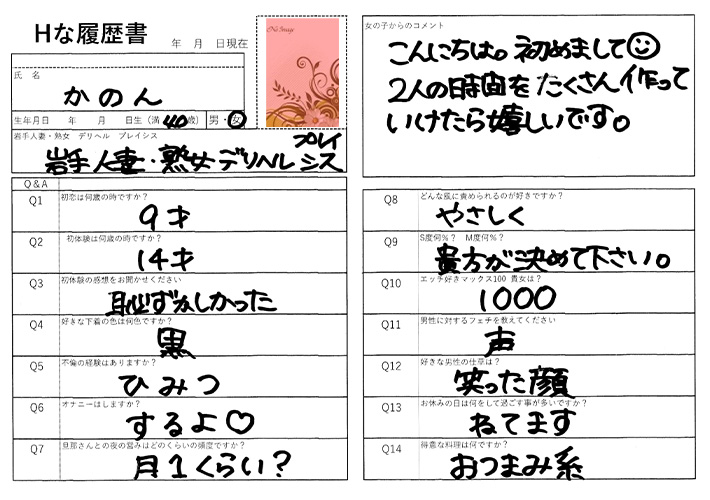 Hな履歴書
年 月 日現在
No Image
氏 名
かのん
生年月日 年 月 日生（満 40 歳） 男・女
岩手人妻・熟女 デリヘル プレイシス
岩手人妻・熟女デリヘル プレイシス
Q&A
Q1 初恋は何歳の時ですか？
9才
Q2 初体験は何歳の時ですか？
14才
Q3 初体験の感想をお聞かせください
恥ずかしかった
Q4 好きな下着の色は何色ですか？
黒
Q5 不倫の経験はありますか？
ひみつ
Q6 オナニーはしますか？
するよ♡
Q7 旦那さんとの夜の営みはどのくらいの頻度ですか？
月1くらい？
女の子からのコメント
こんにちは。初めまして☺
2人の時間をたくさん作って
いけたら嬉しいです。
Q8 どんな風に責められるのが好きですか？
やさしく
Q9 S度何%？ M度何%？
貴方が決めて下さい。
Q10 エッチ好きマックス100 貴女は？
1000
Q11 男性に対するフェチを教えてください
声
Q12 好きな男性の仕草は？
笑った顔
Q13 お休みの日は何をして過ごす事が多いですか？
ねてます
Q14 得意な料理は何ですか？
おつまみ系